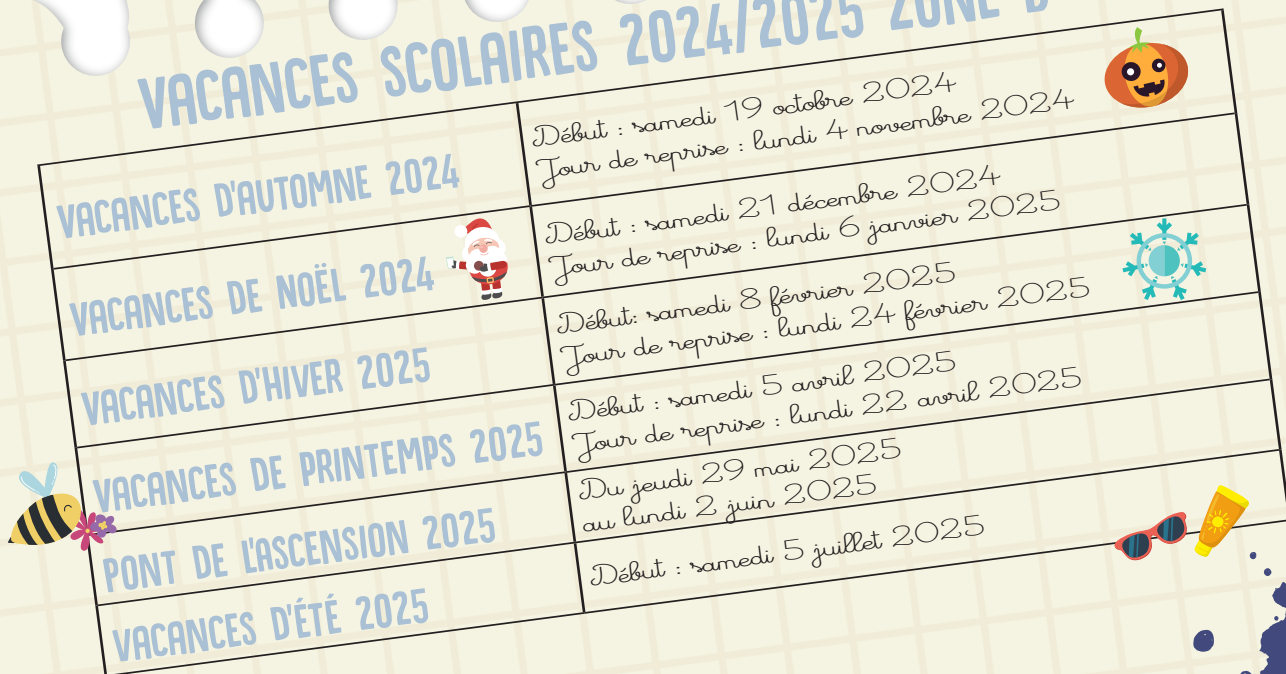 VACANCES SCOLAIRES 2024/2025 ZONE
VACANCES D'AUTOMNE 2024
Début : samedi 19 octobre 2024
Jour de reprise : lundi 4 novembre 2024
VACANCES DE NOËL 2024
Début : samedi 21 décembre 2024
Jour de reprise : lundi 6 janvier 2025
VACANCES D'HIVER 2025
Début: samedi 8 février 2025
Jour de reprise : lundi 24 février 2025
VACANCES DE PRINTEMPS 2025
Début : samedi 5 avril 2025
Jour de reprise : lundi 22 avril 2025
PONT DE L'ASCENSION 2025
Du jeudi 29 mai 2025
au lundi 2 juin 2025
VACANCES D'ÉTÉ 2025
Début : samedi 5 juillet 2025